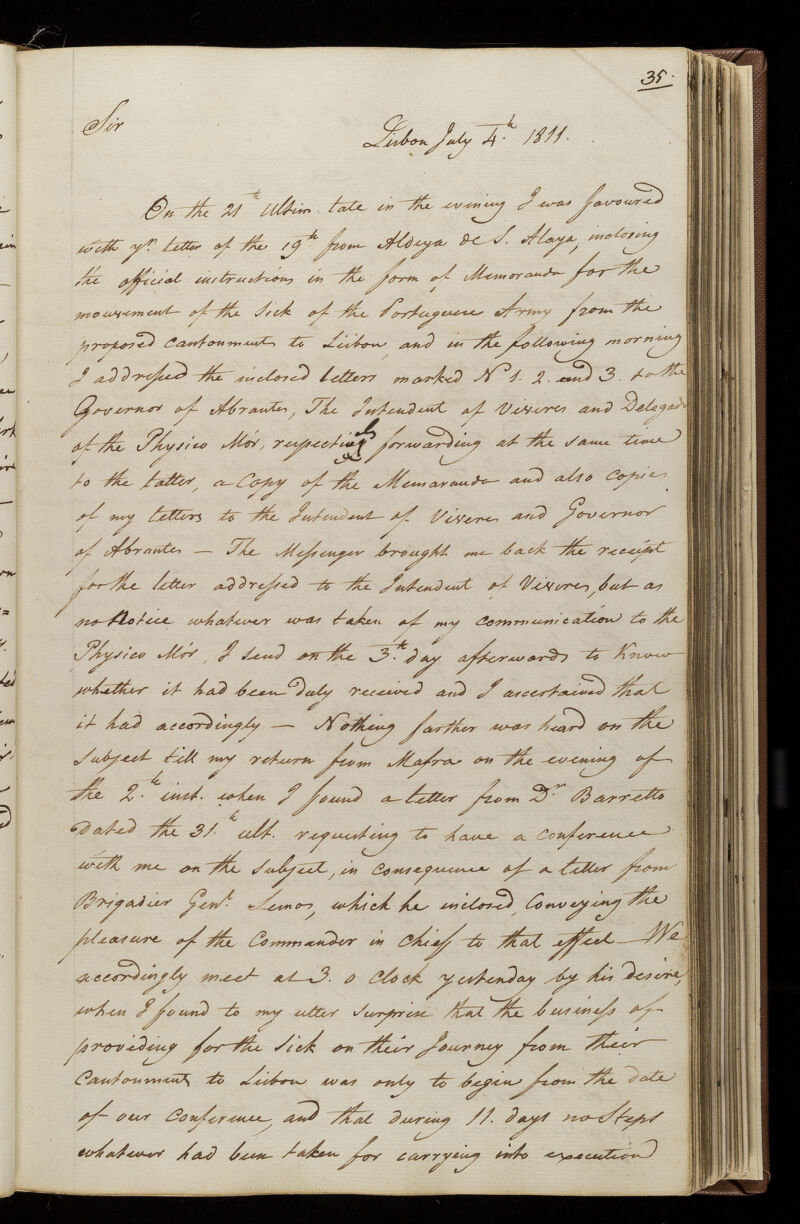 35.
Sir
Lisbon July 4.th 1811.
On the 21th Ultim. late in the evening I was favoured
with yr. letter of the 19th from Aldeya de S. Alaya, inclosing
the official instructions in the form of Memoranda for the
mouvement of the Sick of the Portuguese Army from the
proposed cantonments to Lisbon, and in the following morning
I addressed the inclosed letters marked No 1. 2. and 3. to the
Governor of Abrantes, The Intendent of Viveres and Delegado
of the Physico Mór, respectively forwarding at the same time
to the latter, a Copy of the Memoranda and also copies
of my letters to the Intendent of Viveres and Governor
of Abrantes — The Messenger brought me back the receipt
for the letter addressed to the Intendent of Viveres, but as
no Notice whatever was taken of my communication to the
Physico Mór, I send on the 3.th day afterwards to Know
whether it had been duly received and I ascertained that
it had accordingly — Nothing farther was heard on the
subject till my return from Mafra on the evening of
the 2.th inst. when I found a letter from Dr. Barretto
Dated the 31.th ult. requesting to have a conference
with me on the subject, in consequence of a letter from
Brigadier Genl. Lemos, which he inclosed, Conveying the
pleasure of the Commander in Chief to that effect — We
accordingly meet at 3. o Clock yestenday by his desire,
when I found to my utter surprise that the business of
providing for the Sick on their Journey from their
Cantonments to Lisbon was only to begin from the date
of our Conference, and that during 11. days no Steps
whatever had been taken for carrying into execution